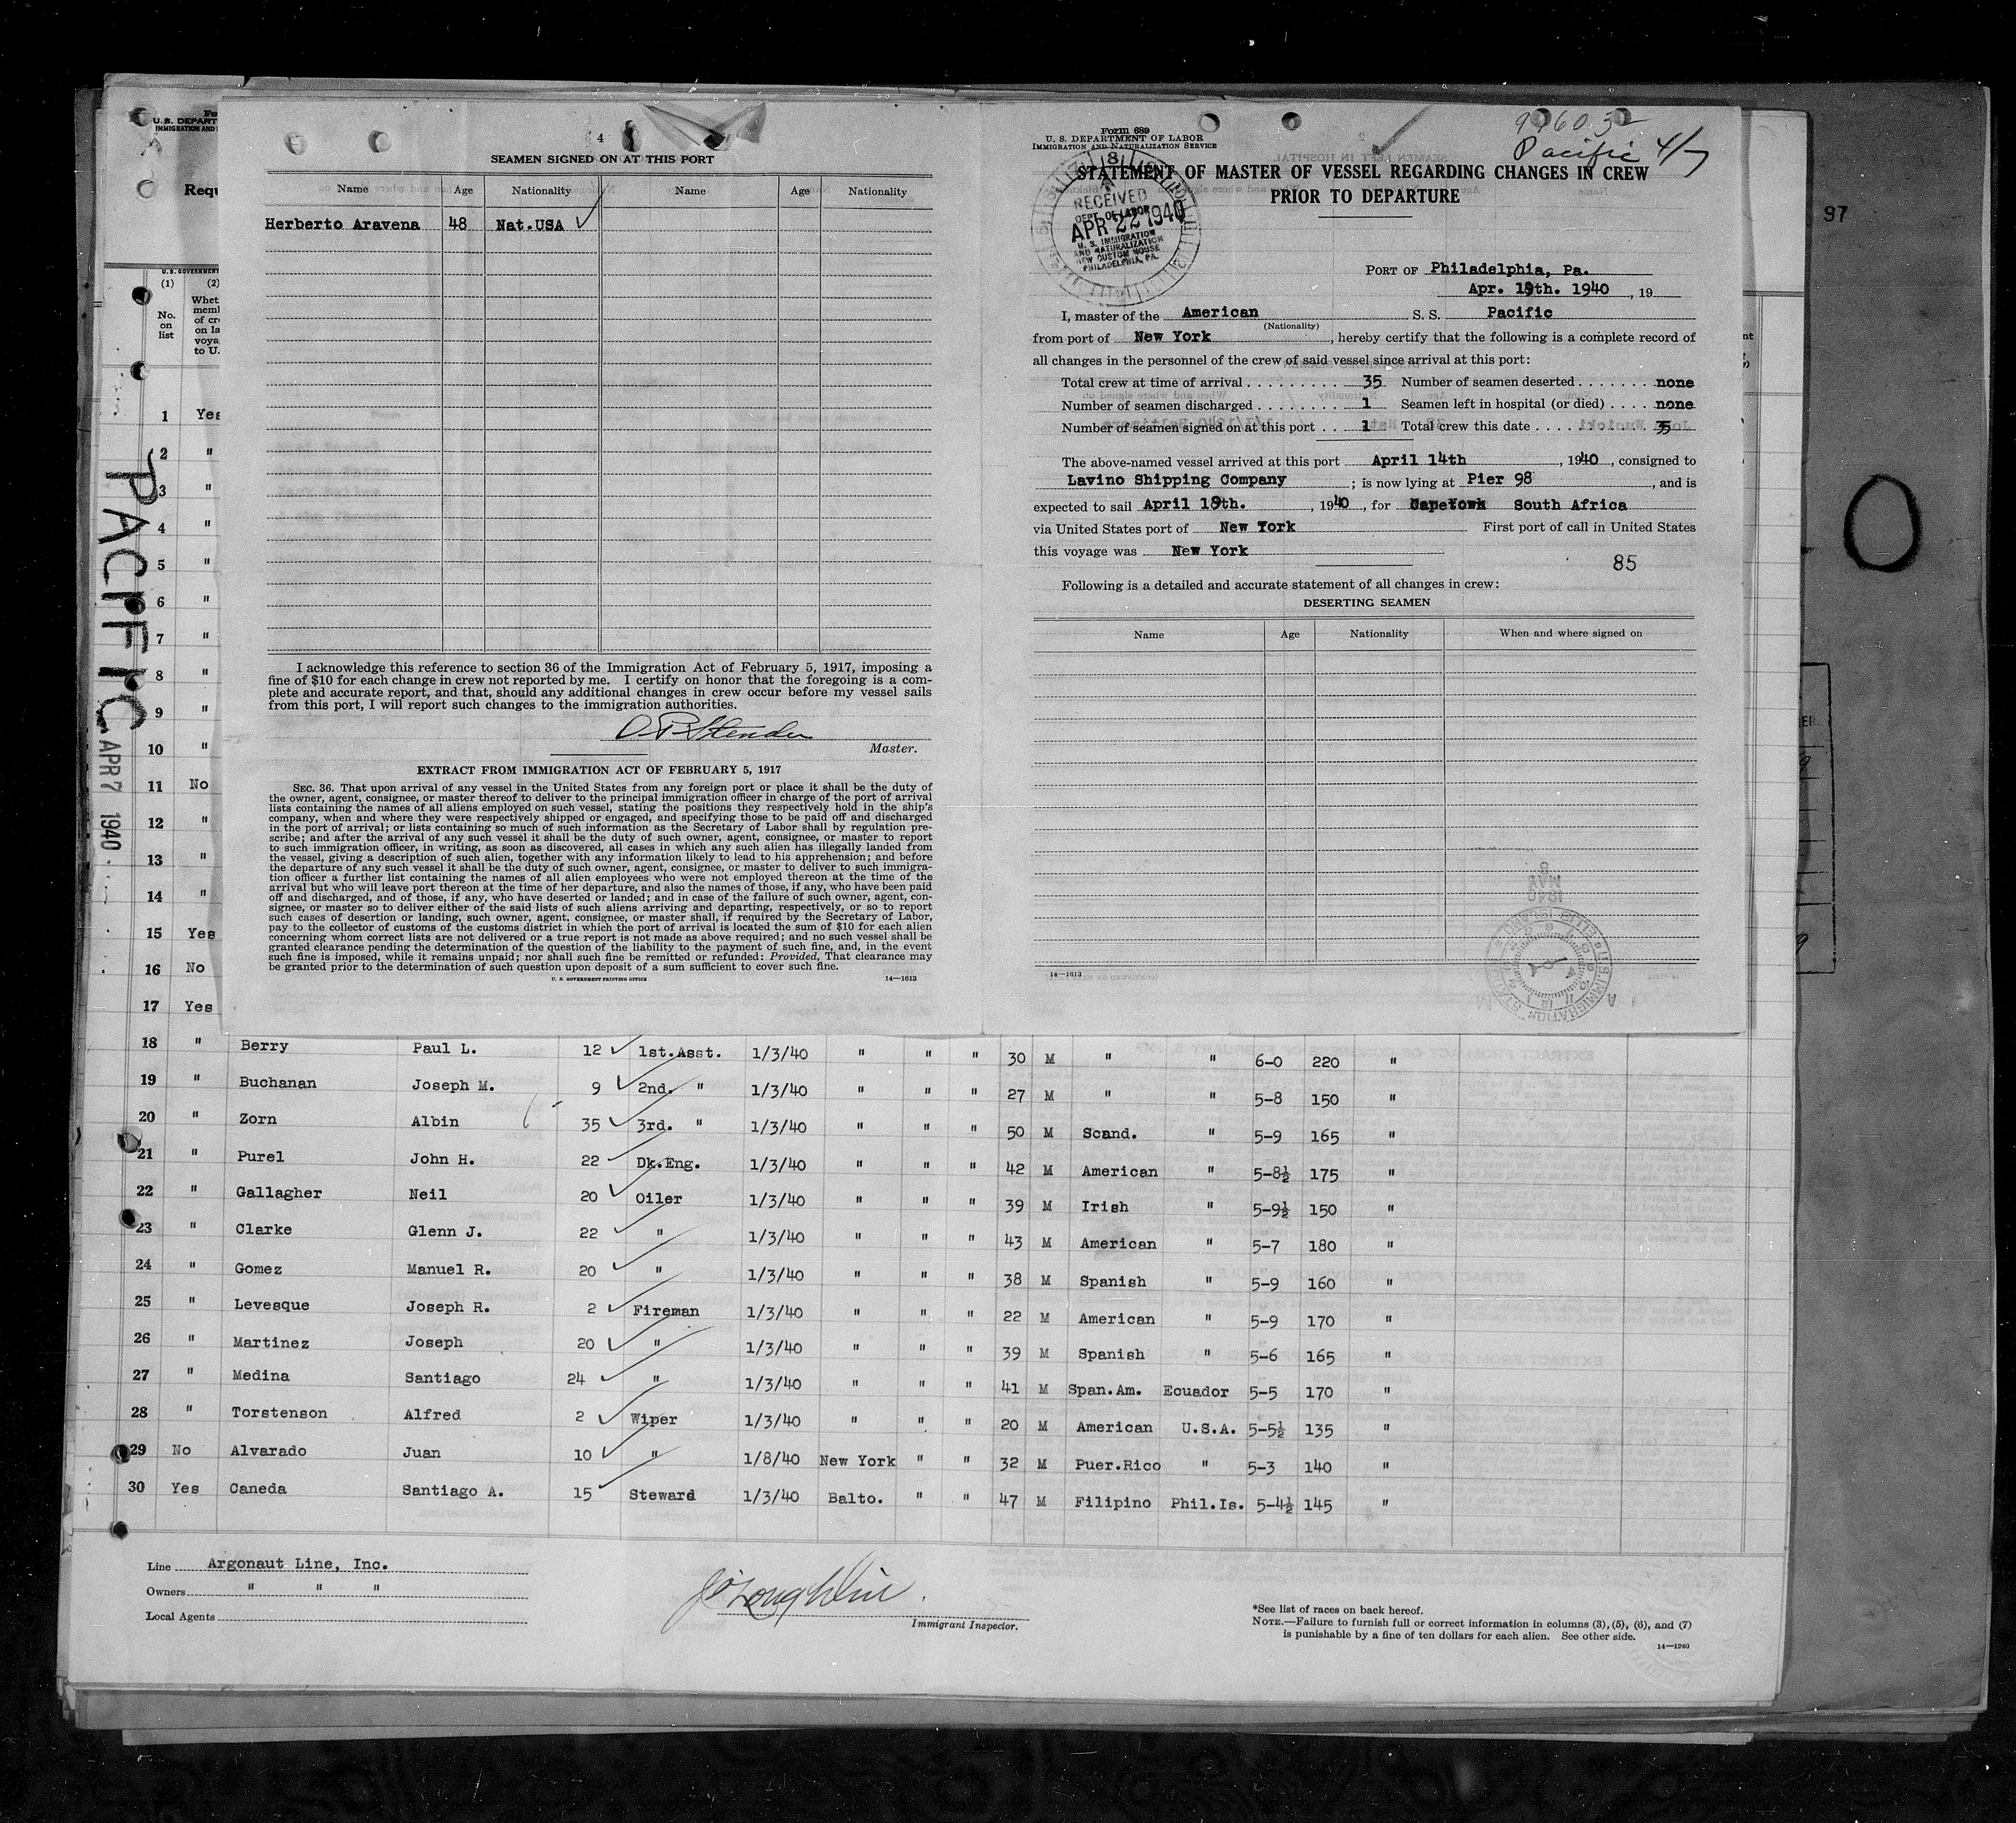 4
SEAMEN SIGNED ON AT THIS PORT
Name Age Nationality Name Age Nationality
Herberto Aravena 48 Nat.USA
I acknowledge this reference to section 36 of the Immigration Act of February 5, 1917, imposing a
fine of $10 for each change in crew not reported by me. I certify on honor that the foregoing is a com-
plete and accurate report, and that, should any additional changes in crew occur before my vessel sails
from this port, I will report such changes to the immigration authorities.
Master.
EXTRACT FROM IMMIGRATION ACT OF FEBRUARY 5, 1917
SEC. 36. That upon arrival of any vessel in the United States from any foreign port or place it shall be the duty of
the owner, agent, consignee, or master thereof to deliver to the principal immigration officer in charge of the port of arrival
lists containing the names of all aliens employed on such vessel, stating the positions they respectively hold in the ship's
company, when and where they were respectively shipped or engaged, and specifying those to be paid off and discharged
in the port of arrival; or lists containing so much of such information as the Secretary of Labor shall by regulation pre-
scribe; and after the arrival of any such vessel it shall be the duty of such owner, agent, consignee, or master to report
to such immigration officer, in writing, as soon as discovered, all cases in which any such alien has illegally landed from
the vessel, giving a description of such alien, together with any information likely to lead to his apprehension; and before
the departure of any such vessel it shall be the duty of such owner, agent, consignee, or master to deliver to such immigra-
tion officer a further list containing the names of all alien employees who were not employed thereon at the time of the
arrival but who will leave port thereon at the time of her departure, and also the names of those, if any, who have been paid
off and discharged, and of those, if any, who have deserted or landed; and in case of the failure of such owner, agent, con-
signee, or master so to deliver either of the said lists of such aliens arriving and departing, respectively, or so to report
such cases of desertion or landing, such owner, agent, consignee, or master shall, if required by the Secretary of Labor,
pay to the collector of customs of the customs district in which the port of arrival is located the sum of $10 for each alien
concerning whom correct lists are not delivered or a true report is not made as above required; and no such vessel shall be
granted clearance pending the determination of the question of the liability to the payment of such fine, and, in the event
such fine is imposed, while it remains unpaid; nor shall such fine be remitted or refunded: Provided, That clearance may
be granted prior to the determination of such question upon deposit of a sum sufficient to cover such fine.
U. S. GOVERNMENT PRINTING OFFICE 14—1613
Form 689
U. S. DEPARTMENT OF LABOR
IMMIGRATION AND NATURALIZATION SERVICE
Pacific 4/7
STATEMENT OF MASTER OF VESSEL REGARDING CHANGES IN CREW
PRIOR TO DEPARTURE
RECEIVED
DEPT. OF LABOR
APR 22 1940
U. S. IMMIGRATION
AND NATURALIZATION
NEW CUSTOM HOUSE
PHILADELPHIA, PA.
PORT OF Philadelphia, Pa.
Apr. 19th. 1940, 19
I, master of the American S. S. Pacific
(Nationality)
from port of New York, hereby certify that the following is a complete record of
all changes in the personnel of the crew of said vessel since arrival at this port:
Total crew at time of arrival . . . . . . . . . . 35 Number of seamen deserted . . . . . . . none
Number of seamen discharged . . . . . . . . . 1 Seamen left in hospital (or died) . . . . none
Number of seamen signed on at this port . . 1 Total crew this date . . . . . . . . . . . 35
The above-named vessel arrived at this port April 14th, 1940, consigned to
Lavino Shipping Company ; is now lying at Pier 98, and is
expected to sail April 19th., 1940, for Capetown South Africa
via United States port of New York First port of call in United States
this voyage was New York
85
Following is a detailed and accurate statement of all changes in crew:
DESERTING SEAMEN
Name Age Nationality When and where signed on
14—1613
97
PACIFIC APR 7 1940
(1) (2)
No. on list
1 Yes
2 "
3 "
4 "
5 "
6 "
7 "
8 "
9 "
10 "
11 No
12 "
13 "
14 "
15 Yes
16 No
17 Yes
18 " Berry Paul L. 12 1st.Asst. 1/3/40 " " " 30 M " " 6-0 220 "
19 " Buchanan Joseph M. 9 2nd. " 1/3/40 " " " 27 M " " 5-8 150 "
20 " Zorn Albin 35 3rd. " 1/3/40 " " " 50 M Scand. " 5-9 165 "
21 " Purel John H. 22 Dk.Eng. 1/3/40 " " " 42 M American " 5-8½ 175 "
22 " Gallagher Neil 20 Oiler 1/3/40 " " " 39 M Irish " 5-9½ 150 "
23 " Clarke Glenn J. 22 " 1/3/40 " " " 43 M American " 5-7 180 "
24 " Gomez Manuel R. 20 " 1/3/40 " " " 38 M Spanish " 5-9 160 "
25 " Levesque Joseph R. 2 Fireman 1/3/40 " " " 22 M American " 5-9 170 "
26 " Martinez Joseph 20 " 1/3/40 " " " 39 M Spanish " 5-6 165 "
27 " Medina Santiago 24 " 1/3/40 " " " 41 M Span.Am. Ecuador 5-5 170 "
28 " Torstenson Alfred 2 Wiper 1/3/40 " " " 20 M American U.S.A. 5-5½ 135 "
29 No Alvarado Juan 10 " 1/8/40 New York " " 32 M Puer.Rico " 5-3 140 "
30 Yes Caneda Santiago A. 15 Steward 1/3/40 Balto. " " 47 M Filipino Phil.Is. 5-4½ 145 "
Line Argonaut Line, Inc.
Owners " " "
Local Agents
Immigrant Inspector.
*See list of races on back hereof.
NOTE.—Failure to furnish full or correct information in columns (3), (5), (6), and (7)
is punishable by a fine of ten dollars for each alien. See other side.
14—1240